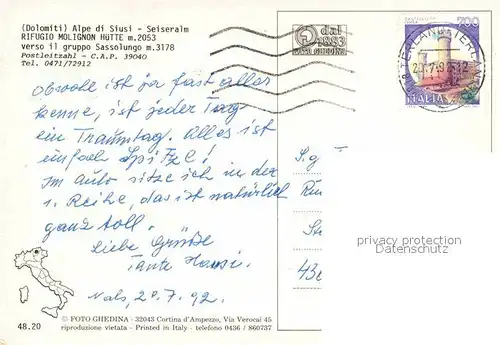 (Dolomiti) Alpe di Siusi - Seiseralm
RIFUGIO MOLIGNON HÜTTE m.2053
verso il gruppo Sassolungo m.3178
Postleitzahl - C.A.P. 39040
Tel. 0471/72912
dal
1883
FOTO GHEDINA
700
ITALIA
TERLANO
Obwohl ich ja fast alles
kenne, ist jeder Tag
ein Traumtag. Alles ist
einfach Spitze!
Im Auto sitze ich in der
1. Reihe, das ist natürlich
ganz toll.
Liebe Grüße
Tante
Nals, 20.7.92.
S.g
Su
privacy protection
Datenschutz
48.20
© FOTO GHEDINA - 32043 Cortina d'Ampezzo, Via Verocai 45
riproduzione vietata - Printed in Italy - telefono 0436 / 860737